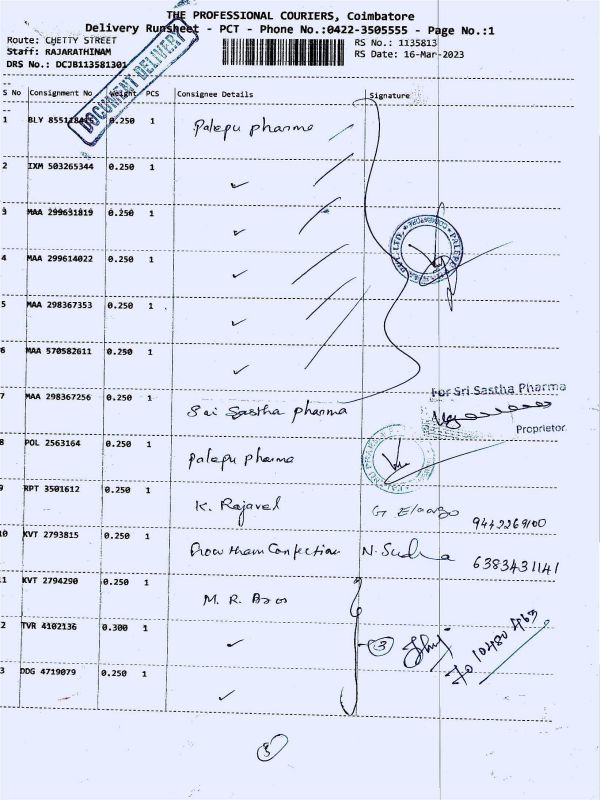 THE PROFESSIONAL COURIERS, Coimbatore
Delivery Runsheet - PCT - Phone No.:0422-3505555 - Page No.:1
Route: CHETTY STREET
RS No.: 1135813
Staff: RAJARATHINAM
RS Date: 16-Mar-2023
DRS No.: DCJB113581301
DOCUMENT DELIVERY
S No Consignment No Weight PCS Consignee Details Signature
1 BLY 0.250 1 Palepu pharma
2 IXM 503265344 0.250 1 ✓
3 MAA 299631819 0.250 1 ✓
4 MAA 299614022 0.250 1 ✓
5 MAA 298367353 0.250 1 ✓
6 MAA 570582611 0.250 1 ✓
7 MAA 298367256 0.250 1 Sri Sastha pharma
For Sri Sastha Pharma
Proprietor
8 POL 2563164 0.250 1 Palepu pharma
9 RPT 3501612 0.250 1 K. Rajavel
10 KVT 2793815 0.250 1 N. Sudha 6383431141
11 KVT 2794290 0.250 1 M. R. Bros
2 TVR 4102136 0.300 1 ✓ 3
3 DDG 4719079 0.250 1 ✓